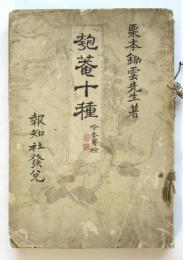 栗本鋤雲先生著
匏菴十種
報知社發兌